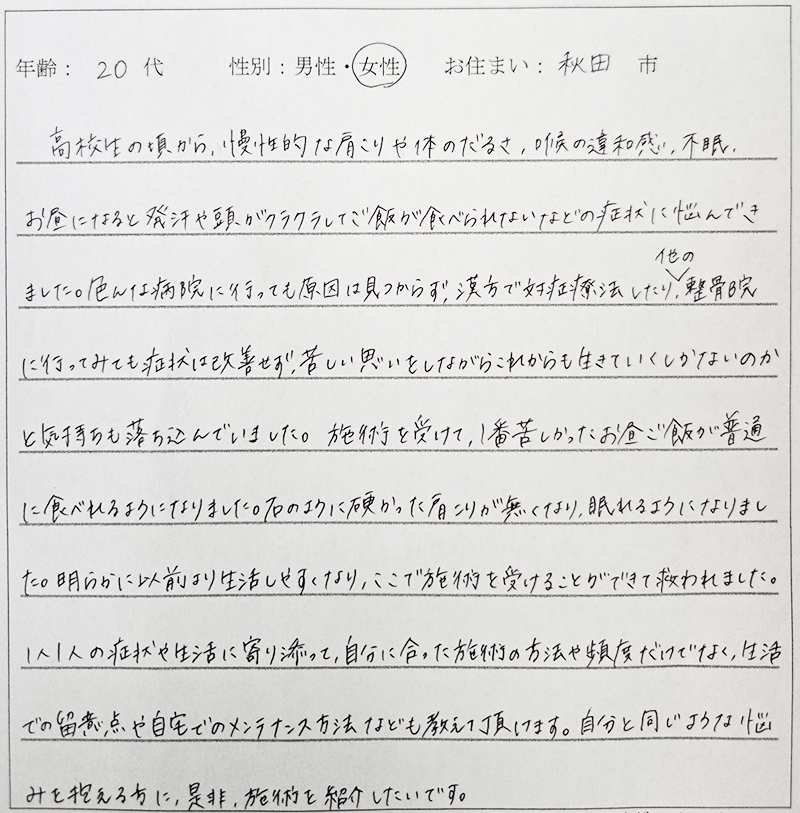 年齢： 20 代 性別：男性・女性 お住まい： 秋田 市
高校生の頃から、慢性的な肩こりや体のだるさ、喉の違和感、不眠、
お昼になると発汗や頭がクラクラしてご飯が食べられないなどの症状に悩んでき
ました。色んな病院に行っても原因は見つからず、漢方で対症療法したり、他の整骨院
に行ってみても症状は改善せず、苦しい思いをしながらこれからも生きていくしかないのか
と気持ちも落ち込んでいました。施術を受けて、1番苦しかったお昼ご飯が普通
に食べれるようになりました。石のように硬かった肩こりが無くなり、眠れるようになりまし
た。明らかに以前より生活しやすくなり、ここで施術を受けることができて救われました。
1人1人の症状や生活に寄り添って、自分に合った施術の方法や頻度だけでなく、生活
での留意点や自宅でのメンテナンス方法なども教えて頂けます。自分と同じような悩
みを抱える方に、是非、施術を紹介したいです。